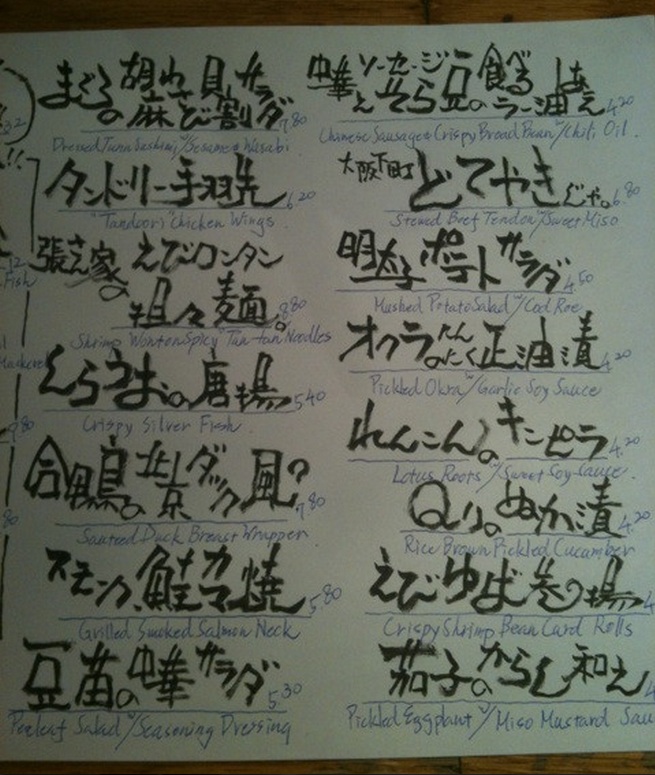 まぐろの胡麻
サラダ 7.80
Dressed Tuna Sashimi w/ Sesame & Wasabi
タンドリー手羽先 6.20
"Tandoori" Chicken Wings
張さん家の えびワンタン
担々麺。 8.80
Shrimp Wonton Spicy "Tan-tan Noodles
しらうおの唐揚 5.40
Crispy Silver Fish
合鴨の北京ダック風? 7.80
Sauteed Duck Breast Wrapper
スモーク鮭カマ焼 5.80
Grilled Smoked Salmon Neck
豆苗の中華サラダ 5.30
Pealeaf Salad w/ Seasoning Dressing
中華ソーセージ
そら豆の食べるラー油あえ 4.20
Chinese Sausage & Crispy Broad Bean w/ Chili Oil
大阪下町 どてやきじゃ。 6.80
Stewed Beef Tendon w/ Sweet Miso
明太子ポテトサラダ 4.50
Mashed Potato Salad w/ Cod Roe
オクラのにんにく正油漬 4.20
Pickled Okra w/ Garlic Soy Sauce
れんこんのキンピラ 4.20
Lotus Roots w/ Sweet Soy Sauce
Qりのぬか漬 4.20
Rice Brown Pickled Cucumber
えびゆば巻き揚 4
Crispy Shrimp Bean Curd Rolls
茄子のからし和え 4
Pickled Eggplant w/ Miso Mustard Sau